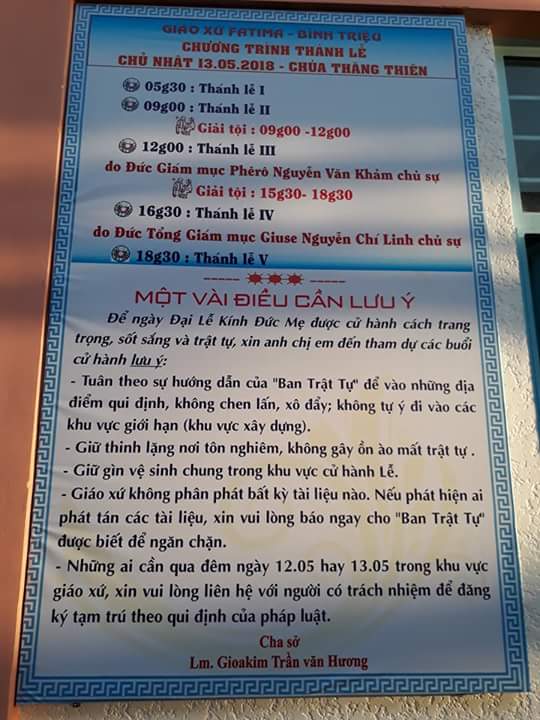 GIÁO XỨ FATIMA - BÌNH TRIỆU
CHƯƠNG TRÌNH THÁNH LỄ
CHỦ NHẬT 13.05.2018 - CHÚA THĂNG THIÊN
05g30 : Thánh lễ I
09g00 : Thánh lễ II
Giải tội : 09g00 -12g00
12g00 : Thánh lễ III
do Đức Giám mục Phêrô Nguyễn Văn Khảm chủ sự
Giải tội : 15g30- 18g30
16g30 : Thánh lễ IV
do Đức Tổng Giám mục Giuse Nguyễn Chí Linh chủ sự
18g30 : Thánh lễ V
MỘT VÀI ĐIỀU CẦN LƯU Ý
Để ngày Đại Lễ Kính Đức Mẹ được cử hành cách trang
trọng, sốt sắng và trật tự, xin anh chị em đến tham dự các buổi
cử hành lưu ý:
- Tuân theo sự hướng dẫn của "Ban Trật Tự" để vào những địa
điểm qui định, không chen lấn, xô đẩy; không tự ý đi vào các
khu vực giới hạn (khu vực xây dựng).
- Giữ thinh lặng nơi tôn nghiêm, không gây ồn ào mất trật tự .
- Giữ gìn vệ sinh chung trong khu vực cử hành Lễ.
- Giáo xứ không phân phát bất kỳ tài liệu nào. Nếu phát hiện ai
phát tán các tài liệu, xin vui lòng báo ngay cho "Ban Trật Tự"
được biết để ngăn chặn.
- Những ai cần qua đêm ngày 12.05 hay 13.05 trong khu vực
giáo xứ, xin vui lòng liên hệ với người có trách nhiệm để đăng
ký tạm trú theo qui định của pháp luật.
Cha sở
Lm. Gioakim Trần văn Hương